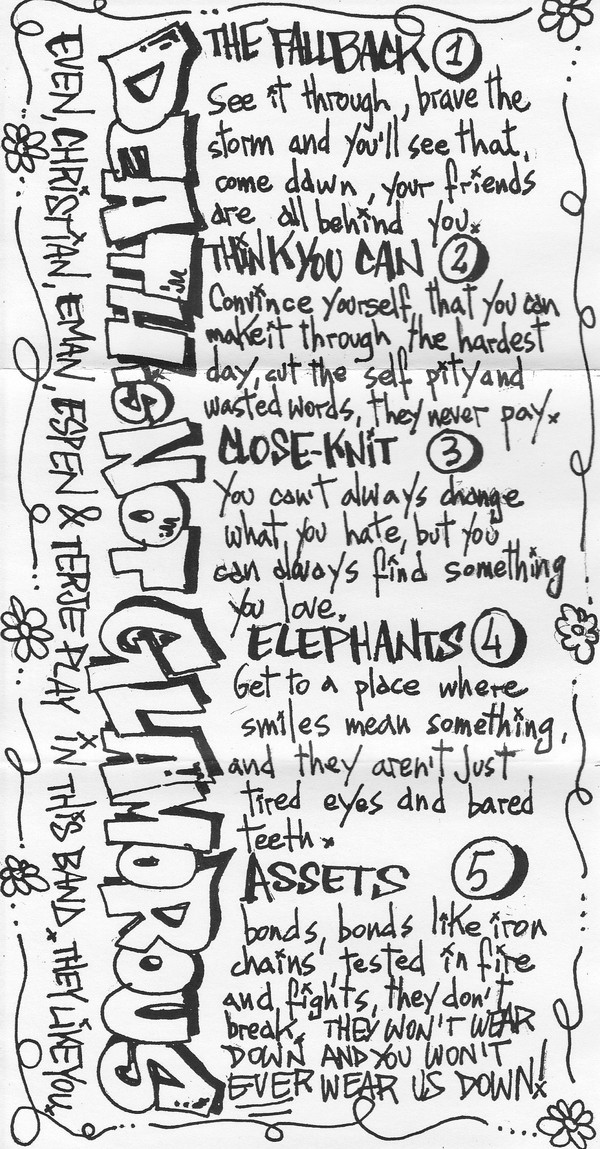 EVEN, CHRISTIAN, EMAN, ESPEN & TERJE PLAY IN THIS BAND. THEY LIKE YOU.
DEATH IS NOT GLAMOROUS
THE FALLBACK 1
See it through, brave the
storm and you'll see that,
come dawn, your friends
are all behind you.
THINK YOU CAN 2
Convince yourself that you can
make it through the hardest
day, cut the self pity and
wasted words, they never pay.
CLOSE-KNIT 3
You can't always change
what you hate, but you
can always find something
you love.
ELEPHANTS 4
Get to a place where
smiles mean something,
and they aren't just
tired eyes and bared
teeth.
ASSETS 5
bonds, bonds like iron
chains, tested in fire
and fights, they don't
break, THEY WON'T WEAR
DOWN AND YOU WON'T
EVER WEAR US DOWN!